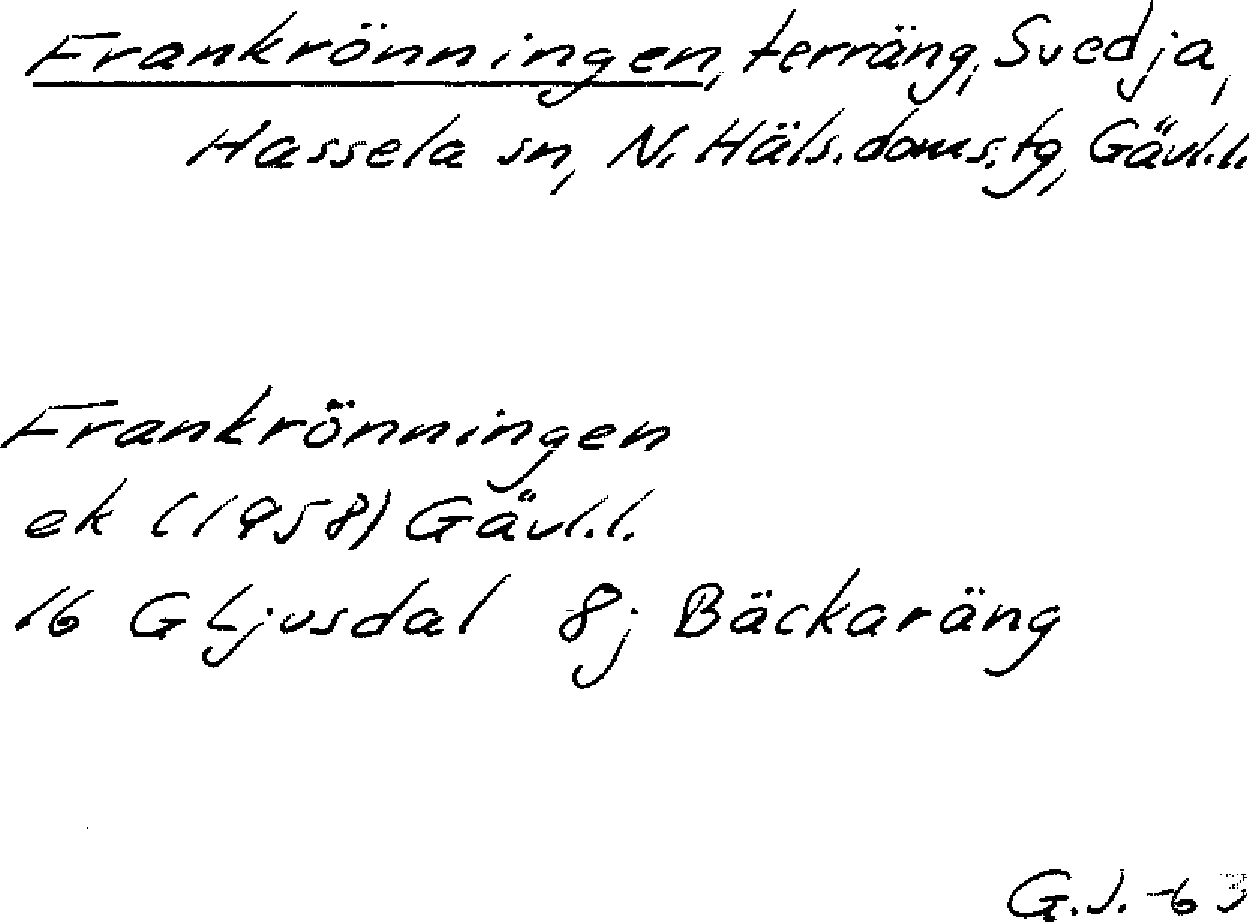 Frankrönningen, terräng, Svedja,
Hassela sn, N. Häls. doms.tg, Gävl.l.
Frankrönningen
ek (1958) Gävl.l.
16 G Ljusdal 8j Bäckaräng
G.J. -63